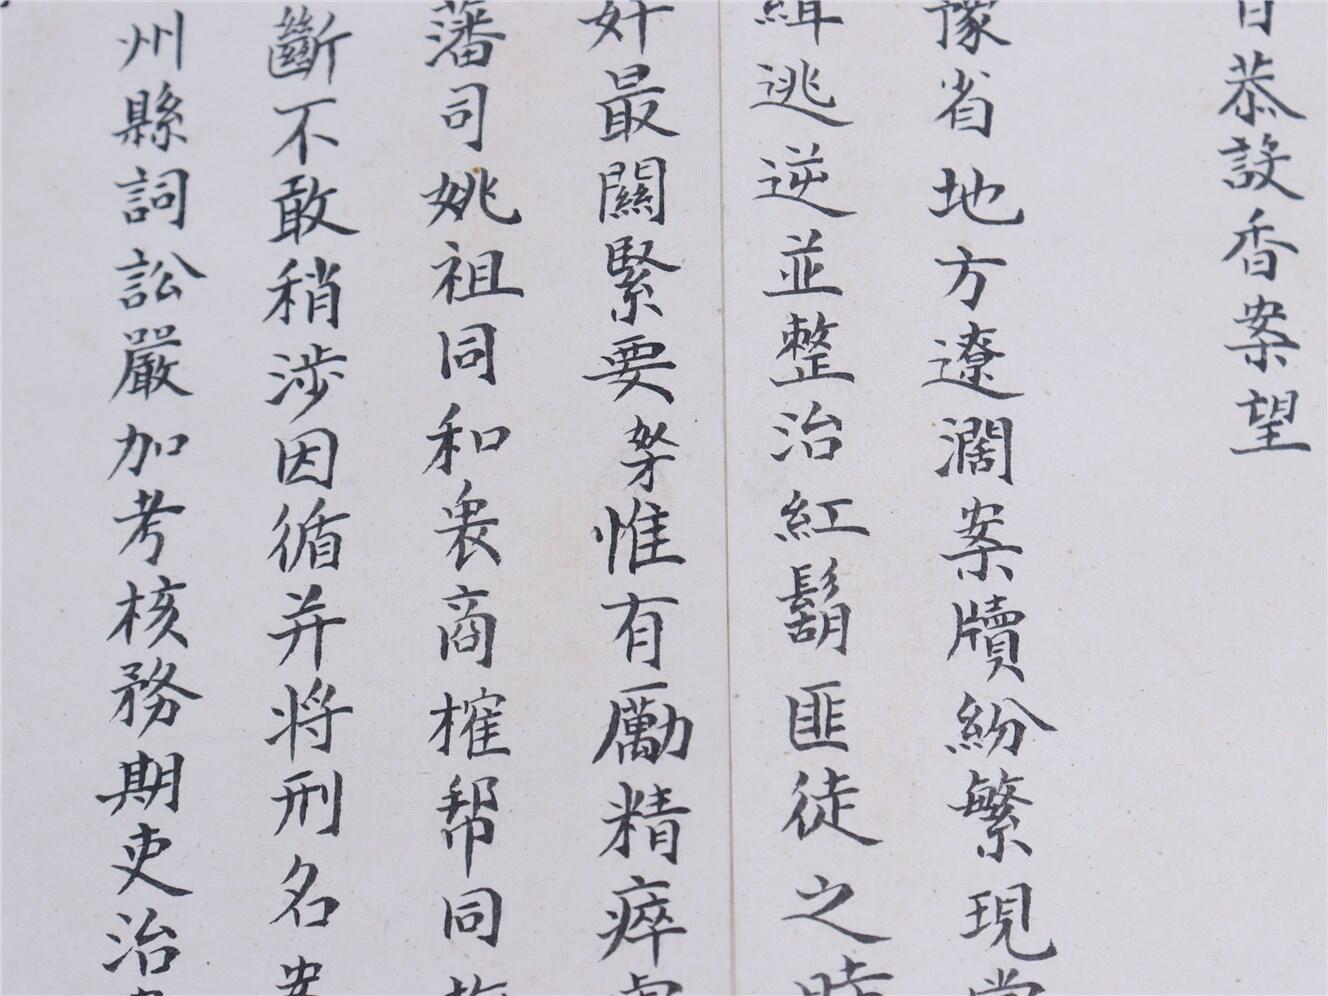 恭設香案望
豫省地方遼濶案牘紛繁現當
緝逃逆並整治紅鬍匪徒之時
奸最關緊要奴才惟有勵精瘁
藩司姚祖同和衷商榷幫同
斷不敢稍涉因循并將刑名案
州縣詞訟嚴加考核務期吏治